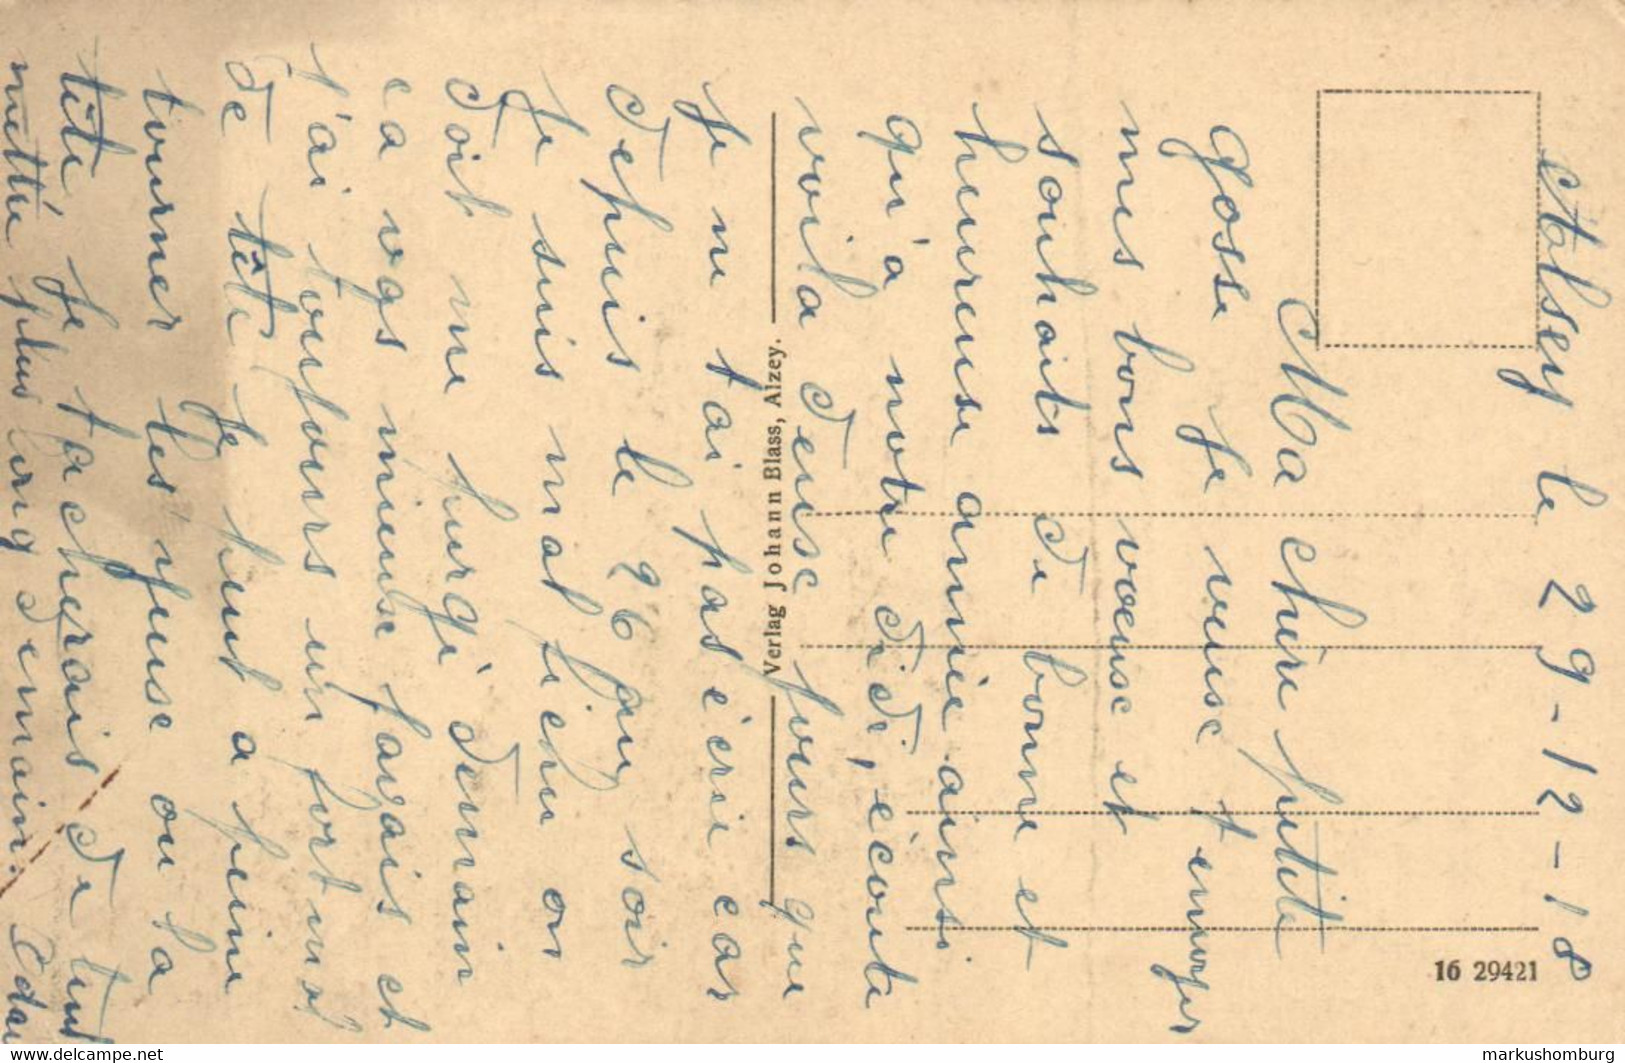 Alsey le 29-12-18
Ma chère petite
gosse je veuse t'envoyer
mes bons voeuse et
souhaits de bonne et
heureuse année ainsi
qu'a notre didi, écoute
voila deuse jours que
je ne tai pas écrie car
depuis le 26 au soir
je suis mal fichu on
doit me purgé demain
ca vas mieuse javais et
j'ai toujours un fort mal
de tête je peut a peine
tourner les yeuse ou la
tête je tacherais de tent
mettre plus long demain.
Verlag Johann Blass, Alzey.
16 29421
markushomburg
delcampe.net